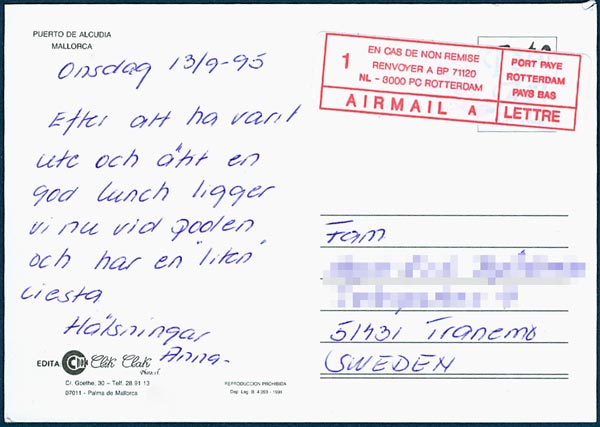 PUERTO DE ALCUDIA
MALLORCA
Onsdag 13/9-95
Efter att ha varit
ute och ätit en
god lunch ligger
vi nu vid poolen
och har en "liten"
ciesta
Hälsningar
Anna
EDITA
Clik Clak
Cr. Goethe, 30 - Telf. 28 91 13
07011 - Palma de Mallorca
REPRODUCCION PROHIBIDA
Dep. Leg. B. 4 293 - 1991
1
EN CAS DE NON REMISE
RENVOYER A BP 71120
NL - 8000 PC ROTTERDAM
PORT PAYE
ROTTERDAM
PAYS BAS
AIRMAIL A
LETTRE
Fam
51431 Tranemo
SWEDEN